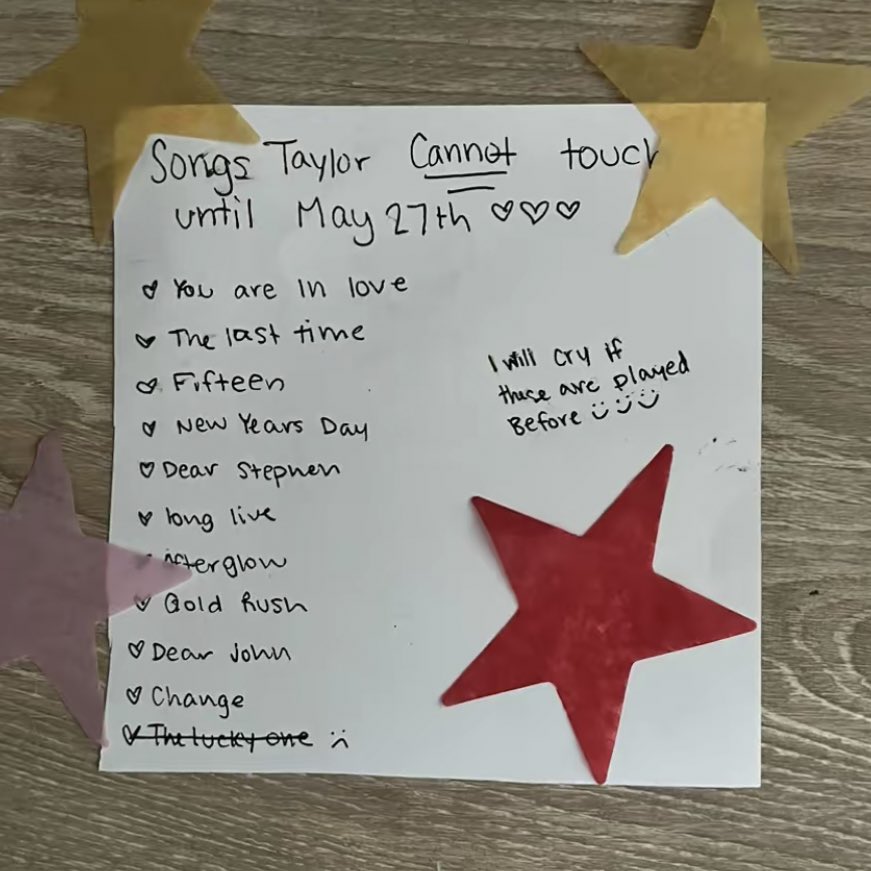 Songs Taylor Cannot touch
until May 27th ♡♡♡
♡ You are in love
♡ The last time
♡ Fifteen
♡ New Years Day
♡ Dear Stephen
♡ long live
♡ afterglow
♡ Gold Rush
♡ Dear John
♡ Change
♡ The lucky one :(
I will cry if
these are played
Before :) :) :)